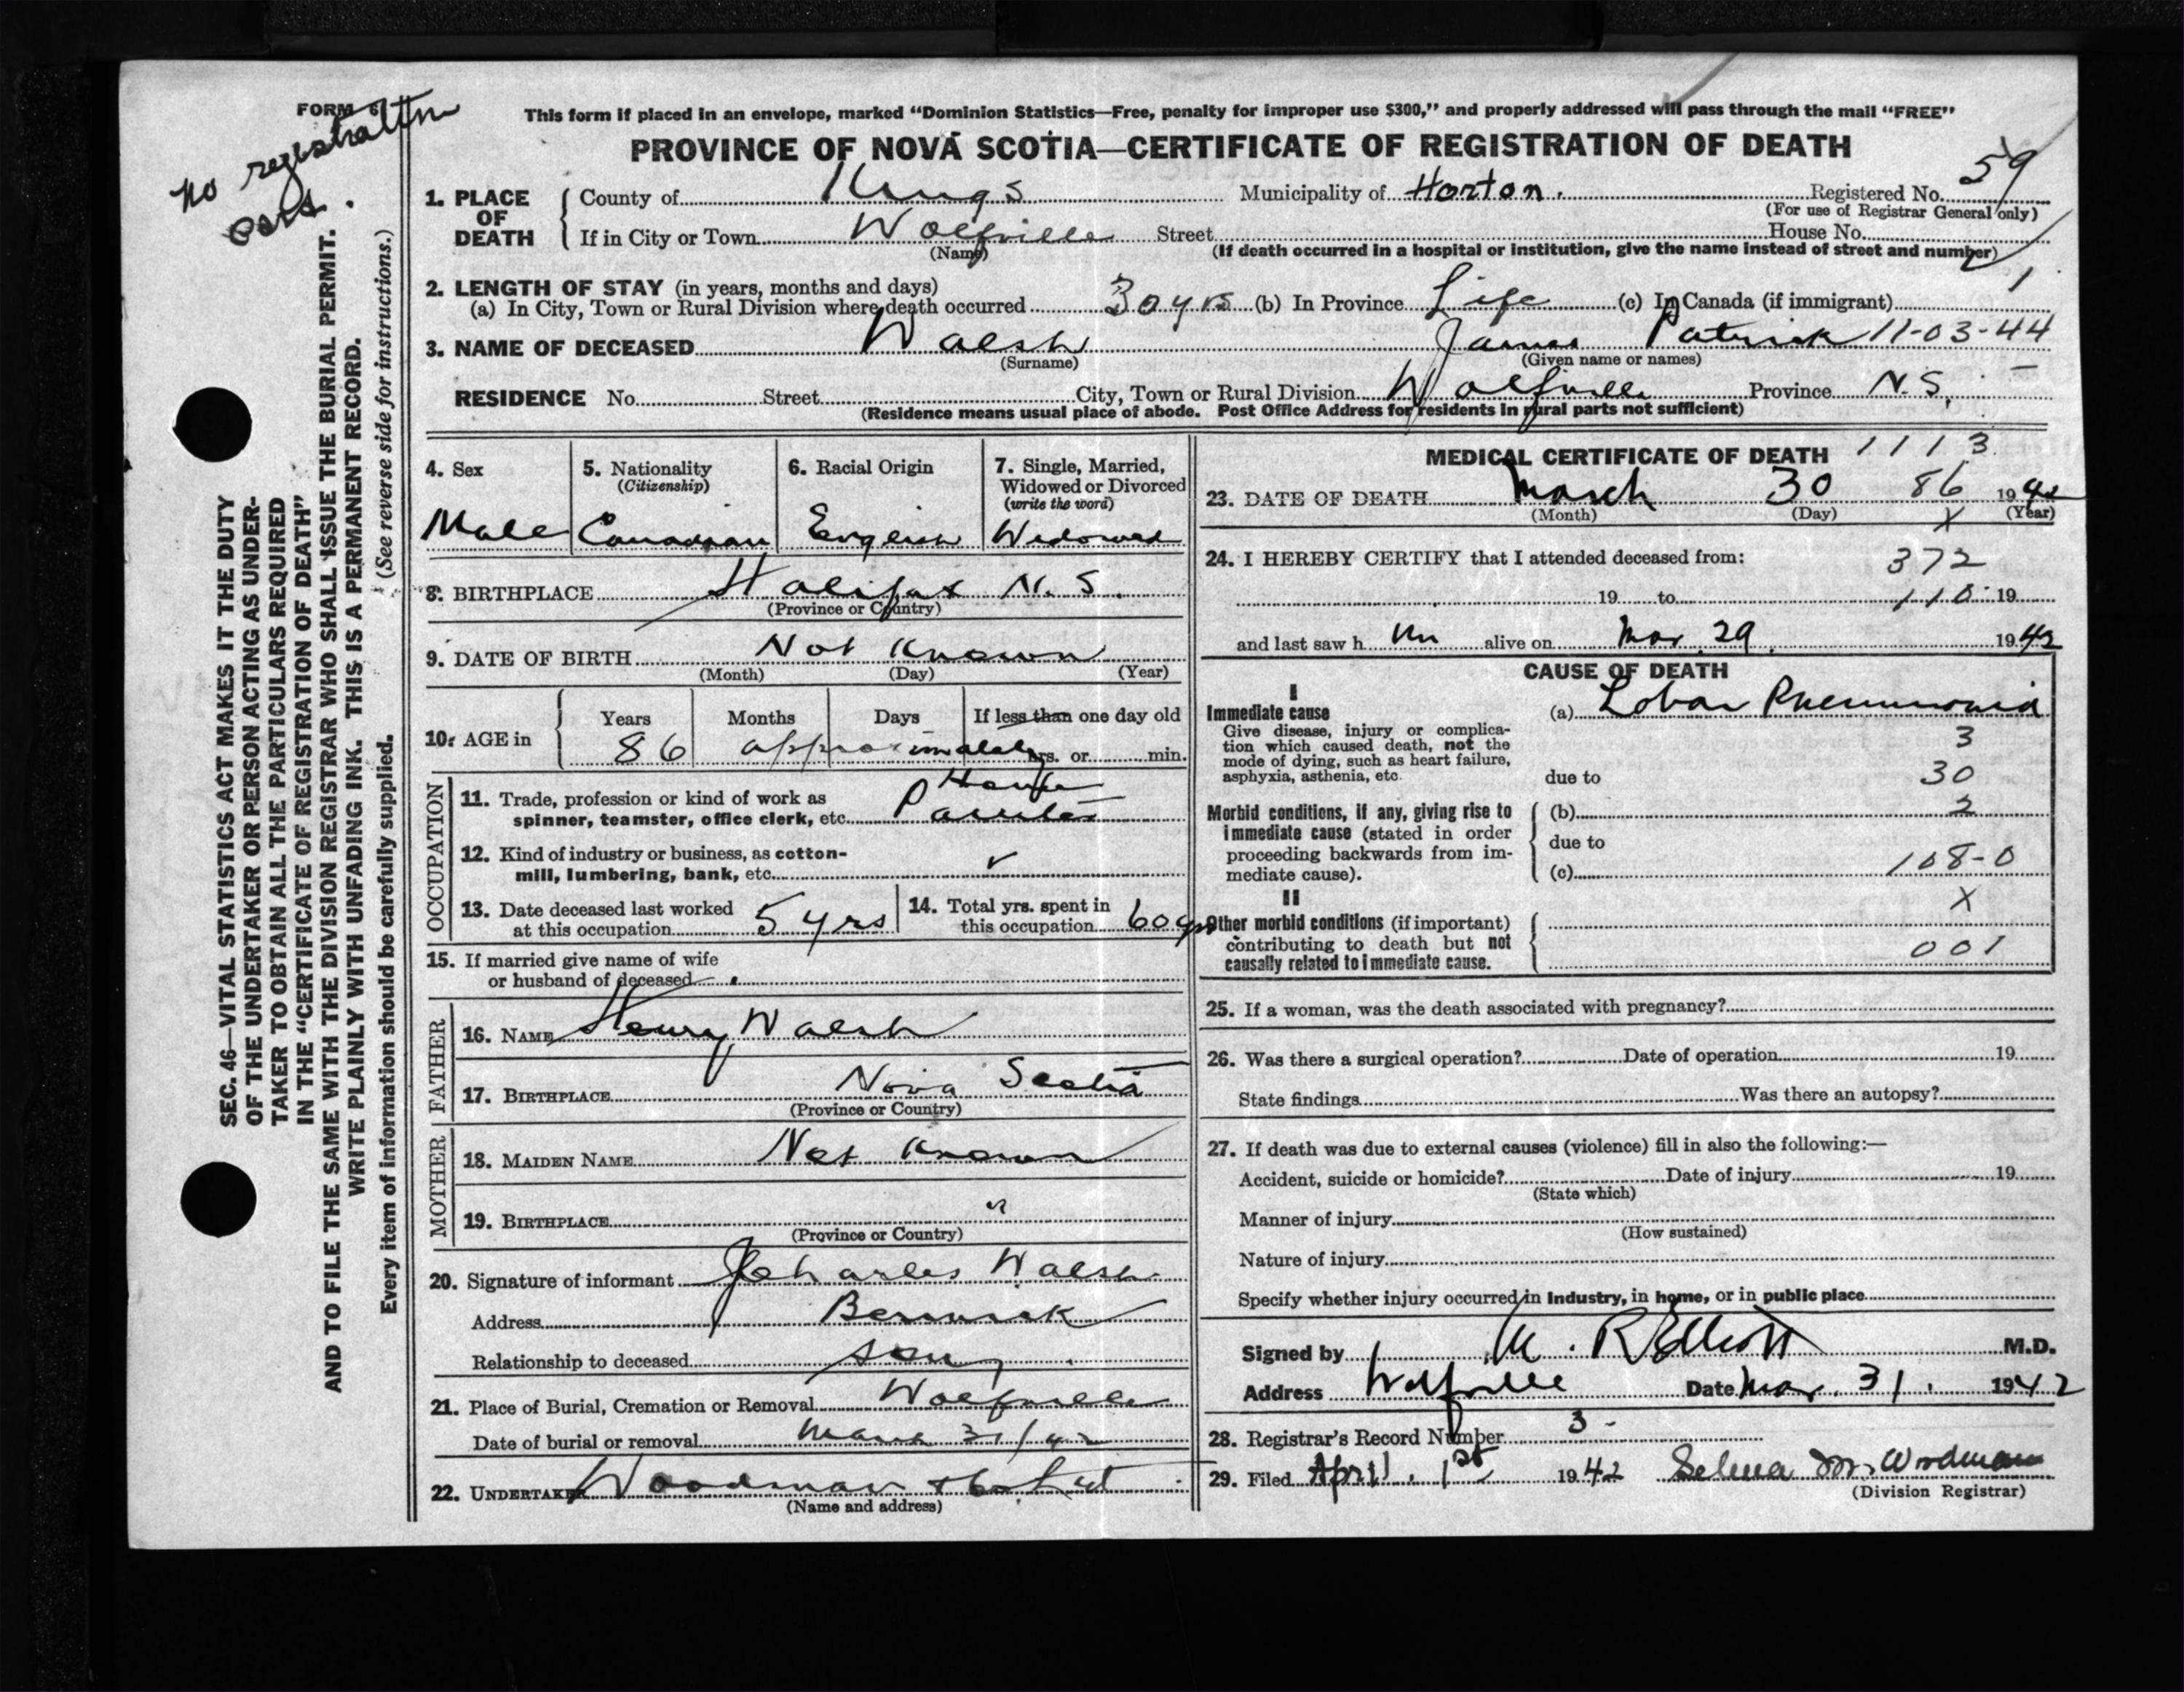 FORM 6
no registration
card.
This form if placed in an envelope, marked “Dominion Statistics—Free, penalty for improper use $300,” and properly addressed will pass through the mail “FREE”
PROVINCE OF NOVA SCOTIA—CERTIFICATE OF REGISTRATION OF DEATH
59
1. PLACE OF DEATH { County of Kings Municipality of Horton. Registered No.
(For use of Registrar General only)
If in City or Town Wolfville Street House No.
(Name) (If death occurred in a hospital or institution, give the name instead of street and number)
2. LENGTH OF STAY (in years, months and days)
1
(a) In City, Town or Rural Division where death occurred 30 yrs (b) In Province Life (c) In Canada (if immigrant)
3. NAME OF DECEASED Walsh James Patrick 11-03-44
(Surname) (Given name or names)
RESIDENCE No. Street City, Town or Rural Division Wolfville Province N.S.
(Residence means usual place of abode. Post Office Address for residents in rural parts not sufficient)
4. Sex Male
5. Nationality
(Citizenship)
Canadian
6. Racial Origin
English
7. Single, Married, Widowed or Divorced
(write the word)
Widowed
8. BIRTHPLACE Halifax N.S.
(Province or Country)
9. DATE OF BIRTH Not Known
(Month) (Day) (Year)
10. AGE in { Years Months Days If less than one day old
86 approximately hrs. or min.
OCCUPATION
11. Trade, profession or kind of work as spinner, teamster, office clerk, etc. House Painter
12. Kind of industry or business, as cotton-mill, lumbering, bank, etc. ✓
13. Date deceased last worked at this occupation 5 yrs
14. Total yrs. spent in this occupation 60 yrs
15. If married give name of wife or husband of deceased
FATHER
16. NAME Henry Walsh
17. BIRTHPLACE Nova Scotia
(Province or Country)
MOTHER
18. MAIDEN NAME Not Known
19. BIRTHPLACE "
(Province or Country)
20. Signature of informant Charles Walsh
Address Berwick
Relationship to deceased son
21. Place of Burial, Cremation or Removal Wolfville
Date of burial or removal March 31/42
22. UNDERTAKER Woodman & Co Ltd
(Name and address)
MEDICAL CERTIFICATE OF DEATH 1113
23. DATE OF DEATH March 30 86 1942
(Month) (Day) (Year)
X
24. I HEREBY CERTIFY that I attended deceased from:
372
19 to 110 19
and last saw him alive on Mar. 29 1942
CAUSE OF DEATH
I
Immediate cause (a) Lobar Pneumonia
Give disease, injury or complication which caused death, not the mode of dying, such as heart failure, asphyxia, asthenia, etc.
3
due to 30
Morbid conditions, if any, giving rise to immediate cause (stated in order proceeding backwards from immediate cause).
(b) 2
due to
(c) 108-0
II
X
Other morbid conditions (if important) contributing to death but not causally related to immediate cause.
001
25. If a woman, was the death associated with pregnancy?
26. Was there a surgical operation? Date of operation 19
State findings Was there an autopsy?
27. If death was due to external causes (violence) fill in also the following:—
Accident, suicide or homicide? Date of injury 19
(State which)
Manner of injury
(How sustained)
Nature of injury
Specify whether injury occurred in Industry, in home, or in public place
Signed by M. R Elliott M.D.
Address Wolfville Date Mar. 31. 1942
28. Registrar's Record Number 3-
29. Filed April 1st 1942 Selena M. Woodman
(Division Registrar)
SEC. 46—VITAL STATISTICS ACT MAKES IT THE DUTY
OF THE UNDERTAKER OR PERSON ACTING AS UNDER-
TAKER TO OBTAIN ALL THE PARTICULARS REQUIRED
IN THE “CERTIFICATE OF REGISTRATION OF DEATH”
AND TO FILE THE SAME WITH THE DIVISION REGISTRAR WHO SHALL ISSUE THE BURIAL PERMIT.
WRITE PLAINLY WITH UNFADING INK. THIS IS A PERMANENT RECORD.
Every item of information should be carefully supplied. (See reverse side for instructions.)